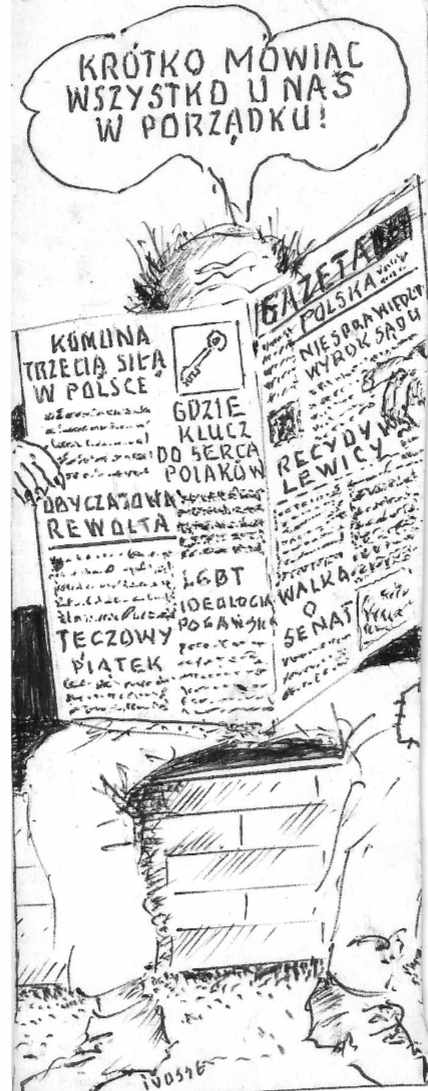 KRÓTKO MÓWIĄC
WSZYSTKO U NAS
W PORZĄDKU!
GAZETA
POLSKA
KOMUNA
TRZECIĄ SIŁĄ
W POLSCE
GDZIE
KLUCZ
DO SERCA
POLAKÓW
OBYCZAJOWA
REWOLTA
LGBT
IDEOLOGIA
POGAŃSKA
TĘCZOWY
PIĄTEK
NIESPRAWIEDLIWY
WYROK SĄDU
RECYDYWA
LEWICY
WALKA
O
SENAT